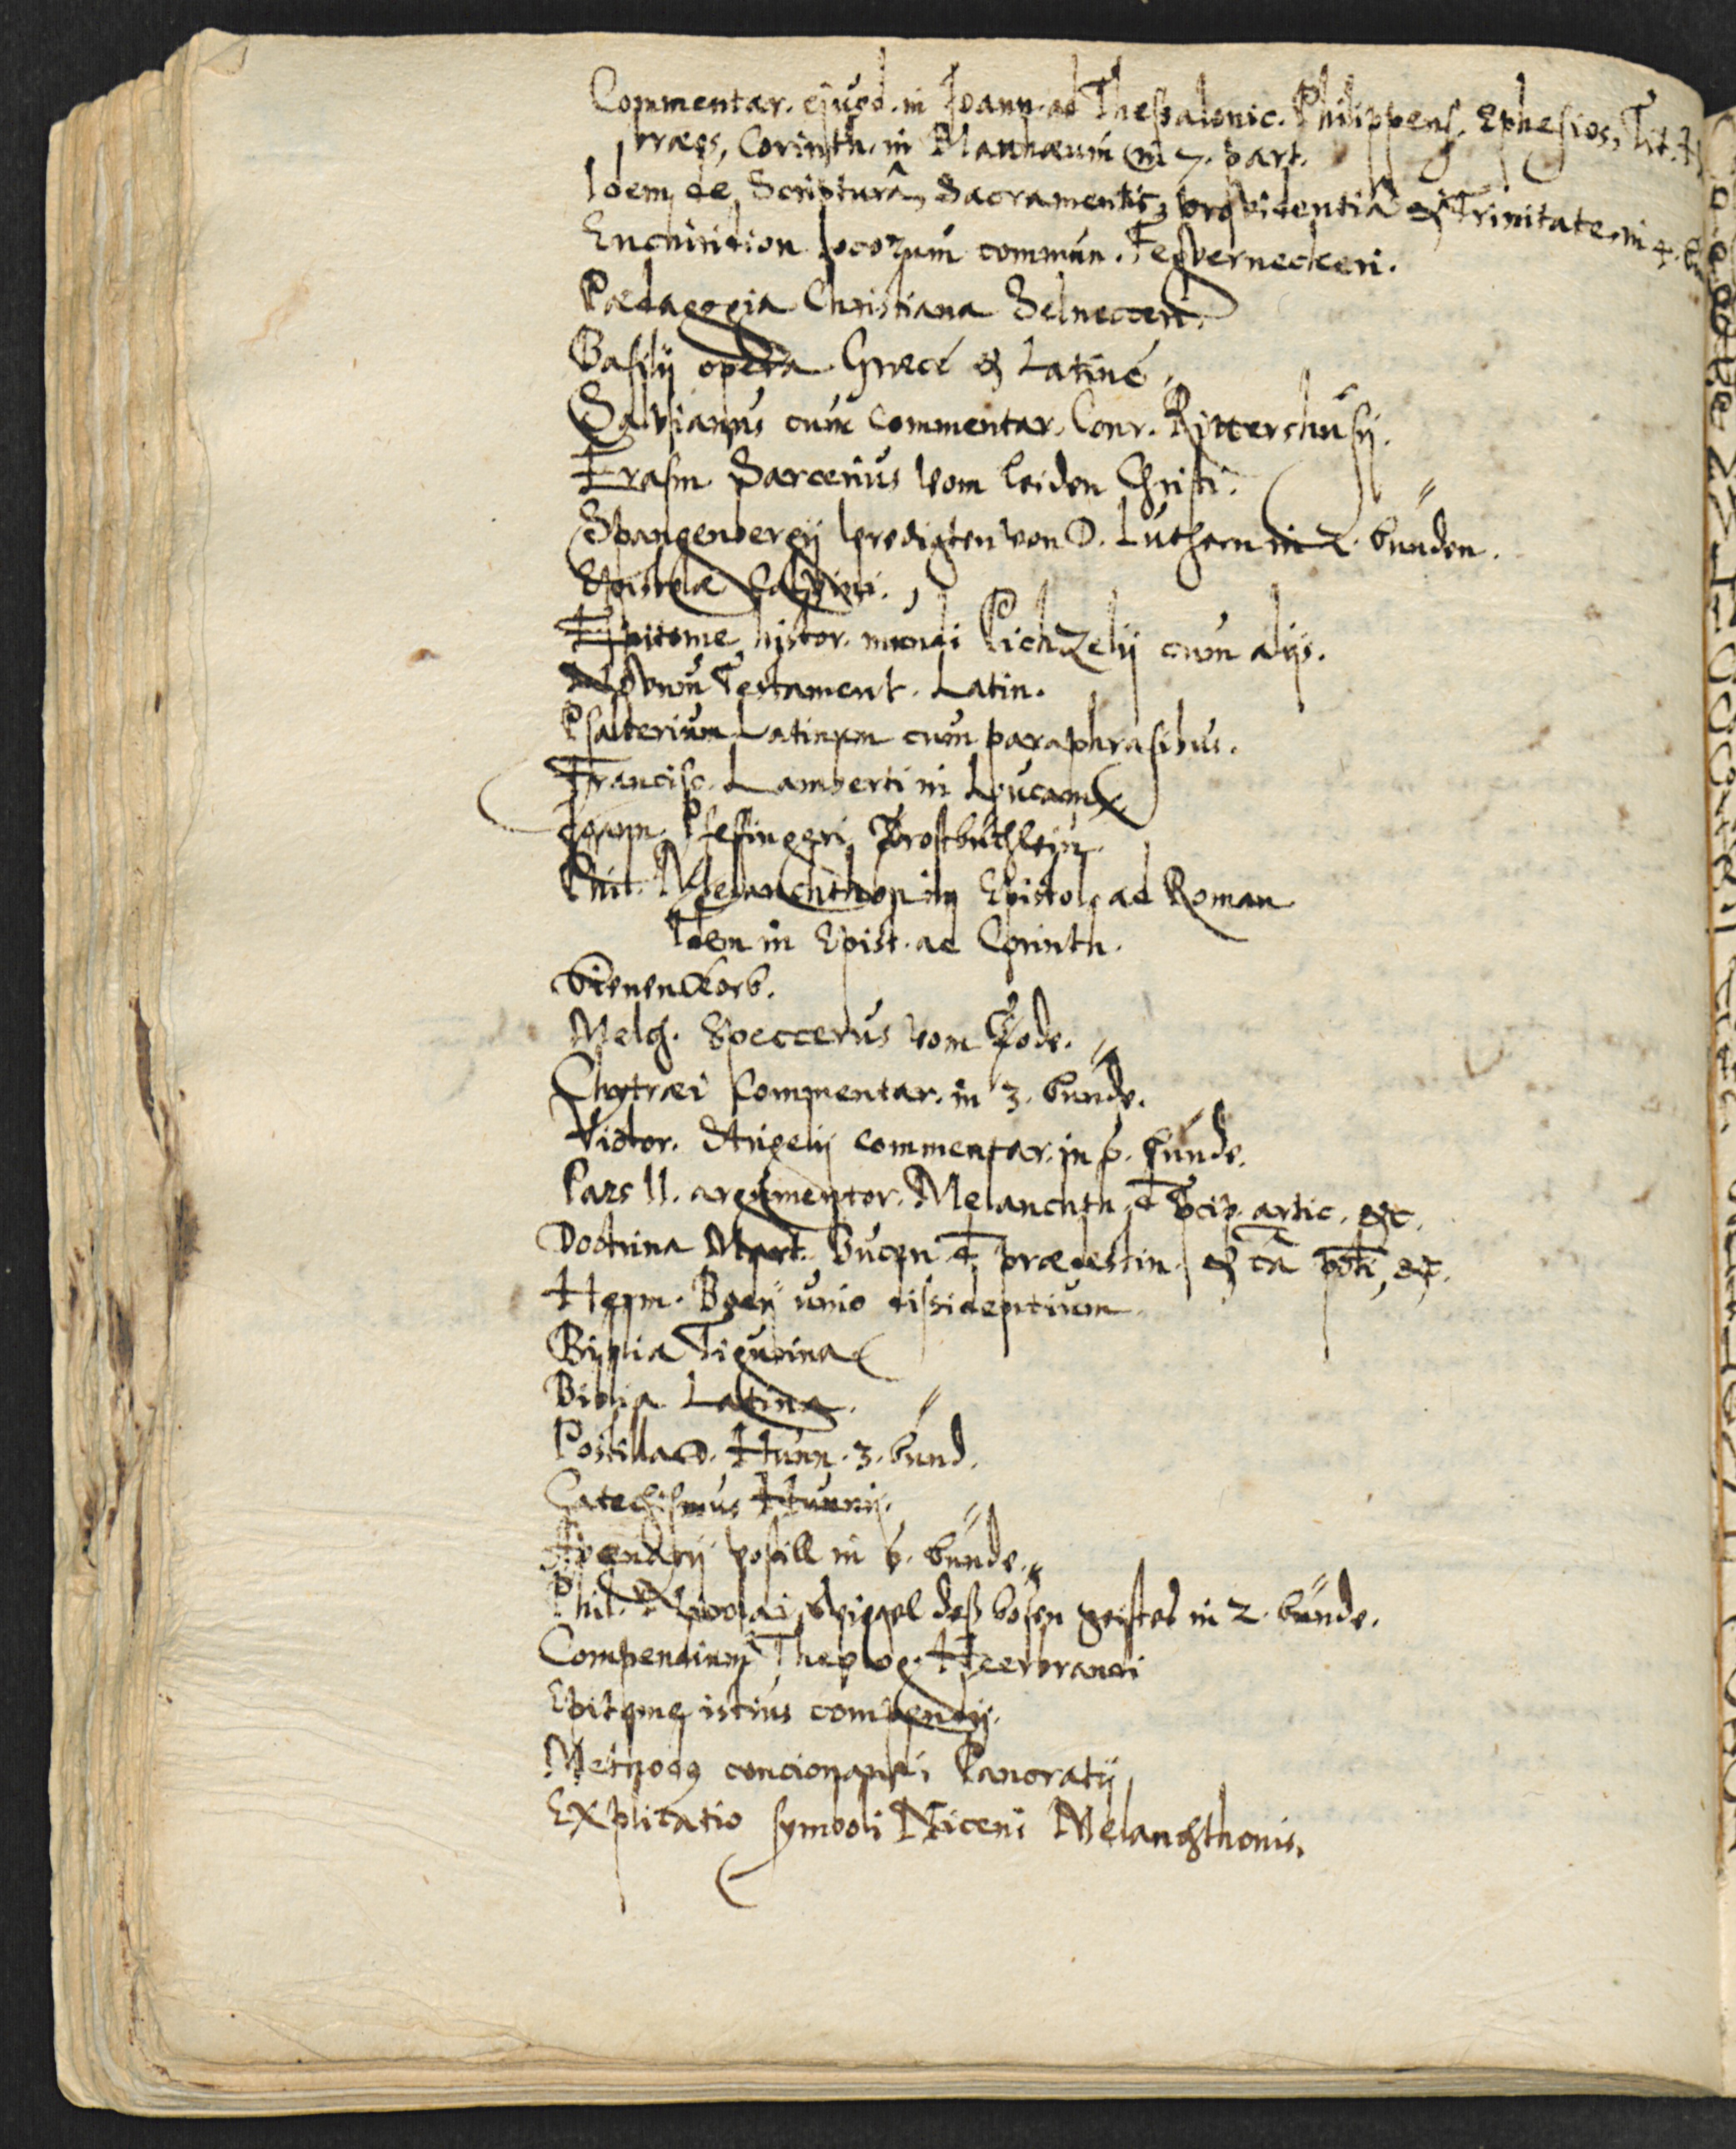 Commentar. ejusd. in Joann. ad Thessalonic. Philippens. Ephesios, Tit.
bræos, Corinth. in Matthæum in 7. part.
Idem de Scripturâ, Sacramentis, providentiâ & Trinitate, in 4.
Enchiridion locorum commun. Feßverneckeri.
Pædagogia Christiana Selnecceri.
Basilij opera Græcè & Latinè.
Salvianus cum Commentar. Conr. Rittershusij.
Erasm. Sarcerius vom leiden Christi.
Spangenbergij predigten von D. Luthern in 2. bünden.
Epistolæ Calvini.
Epitome histor. mundi Pichzelij cum alijs.
Novum Testament. Latin.
Psalterium Latinum cum paraphrasibus.
Francisc. Lamberti in Lucam
Joann. Pfeffingeri Trostbüchlein
Phil. Melanchthon in Epistol. ad Roman
Idem in Epist. ad Corinth.
bienenkorb.
Melch. Speccerus vom Tode.
Chytræi Commentar. in 3. bünde.
Victor. Strigelij commentar. in 6. bünde.
Pars II. argumentor. Melanchth. artic. &c.
Doctrina Mart. Buceri prædestin. & &c.
Herm. Bodij unio dissidentium
Biblia Tigurina
Biblia Latina.
Postilla D. Hunn. 3. bünd.
Catechismus Hunnij.
Avenarij postill in 6. bünde.
Phil. Nicolai Spiegel deß bösen geistes in 2. bünde.
Compendium Theolog. Heerbrandi
Epitome istius compendij.
Methodus concionandi Pancratij
Explicatio symboli Niceni Melanchthonis.